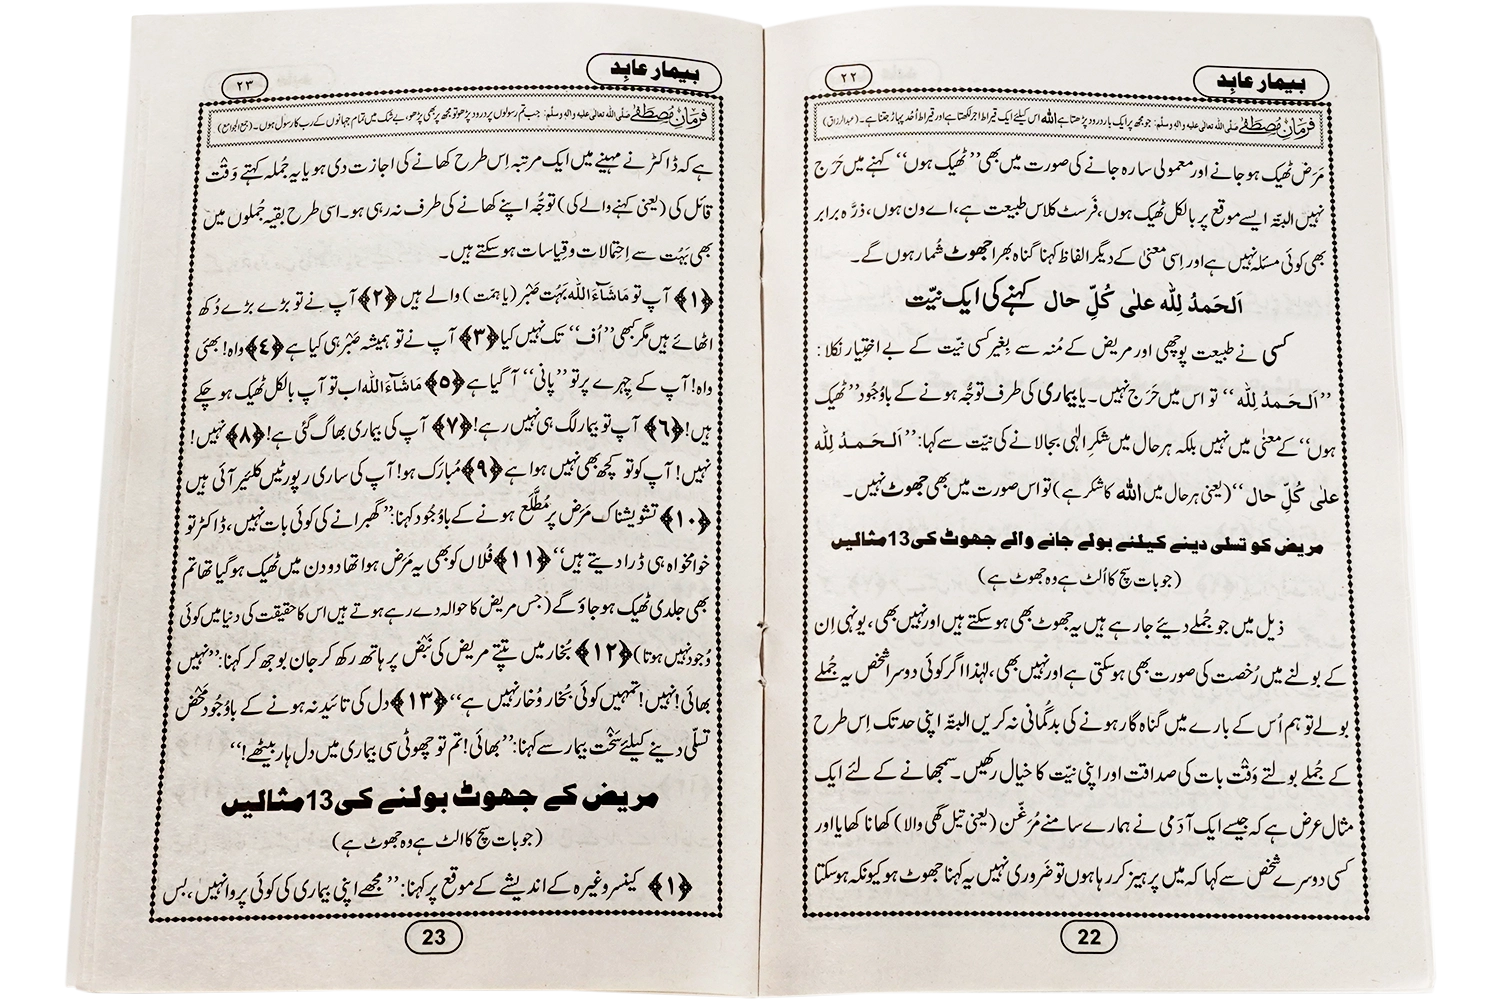 بیمار عابِد
۲۲
فرمانِ مُصطَفٰے صلَّی اللہ تعالٰی علیہ واٰلہٖ وسلَّم: جو مجھ پر ایک بار درود پڑھتا ہے اللہ اس کیلئے ایک قیراط اجر لکھتا ہے اور قیراط اُحُد پہاڑ جتنا ہے۔ (عبدالرزاق)
مَرَض ٹھیک ہو جانے اور معمولی سا رہ جانے کی صورت میں بھی ”ٹھیک ہوں“ کہنے میں حَرَج
نہیں البتّہ ایسے موقع پر بالکل ٹھیک ہوں، فَرسٹ کلاس طبیعت ہے، اے ون ہوں، ذرَّہ برابر
بھی کوئی مسئلہ نہیں ہے اور اِسی معنیٰ کے دیگر الفاظ کہنا گناہ بھرا جھوٹ شُمار ہوں گے۔
اَلحَمدُ لِلّٰہ علٰی کُلِّ حال کہنے کی ایک نیّت
کسی نے طبیعت پوچھی اور مریض کے مُنہ سے بِغیر کسی نیّت کے بے اختِیار نکلا:
”اَلحَمدُ لِلّٰہ“ تو اس میں حَرَج نہیں۔ یا بیماری کی طرف توجُّہ ہونے کے باوُجُود ”ٹھیک
ہوں“ کے معنٰی میں نہیں بلکہ ہر حال میں شکرِ الٰہی بجا لانے کی نیّت سے کہا: ”اَلحَمدُ لِلّٰہ
علٰی کُلِّ حال“ (یعنی ہر حال میں اللہ کا شکر ہے) تو اس صورت میں بھی جھوٹ نہیں۔
مریض کو تسلی دینے کیلئے بولے جانے والے جھوٹ کی 13 مثالیں
(جو بات سچ کا اُلٹ ہے وہ جھوٹ ہے)
ذیل میں جو جُملے دیئے جا رہے ہیں یہ جھوٹ بھی ہو سکتے ہیں اور نہیں بھی، یونہی اِن
کے بولنے میں رُخصت کی صورت بھی ہو سکتی ہے اور نہیں بھی، لہٰذا اگر کوئی دوسرا شخص یہ جُملے
بولے تو ہم اُس کے بارے میں گناہ گار ہونے کی بدگُمانی نہ کریں البتّہ اپنی حد تک اِس طرح
کے جُملے بولتے وَقْت بات کی صداقت اور اپنی نیّت کا خیال رکھیں۔ سمجھانے کے لئے ایک
مثال عرض ہے کہ جیسے ایک آدَمی نے ہمارے سامنے مُرَغَّن (یعنی تیل گھی والا) کھانا کھایا اور
کسی دوسرے شخص سے کہا کہ میں پرہیز کر رہا ہوں تو ضَروری نہیں یہ کہنا جھوٹ ہو کیونکہ ہو سکتا
22
بیمار عابِد
۲۳
فرمانِ مُصطَفٰے صلَّی اللہ تعالٰی علیہ واٰلہٖ وسلَّم: جب تم رسولوں پر درود پڑھو تو مجھ پر بھی پڑھو، بے شک میں تمام جہانوں کے رب کا رسول ہوں۔ (جمع الجوامع)
ہے کہ ڈاکٹر نے مہینے میں ایک مرتبہ اِس طرح کھانے کی اجازت دی ہو یا یہ جُملہ کہتے وَقْت
قائل کی (یعنی کہنے والے کی) توجُّہ اپنے کھانے کی طرف نہ رہی ہو۔ اسی طرح بقیہ جُملوں میں
بھی بَہُت سے اِحتِمالات و قِیاسات ہو سکتے ہیں۔
﴿۱﴾ آپ تو مَاشَآءَاللّٰہ بَہُت صَبْر (یا ہمّت) والے ہیں ﴿۲﴾ آپ نے تو بڑے بڑے دُکھ
اٹھائے ہیں مگر کبھی ”اُف“ تک نہیں کیا ﴿۳﴾ آپ نے تو ہمیشہ صَبْر ہی کیا ہے ﴿۴﴾ واہ! بھئی
واہ! آپ کے چِہرے پر تو ”پانی“ آ گیا ہے ﴿۵﴾ مَاشَآءَاللّٰہ اب تو آپ بالکل ٹھیک ہو چکے
ہیں! ﴿۶﴾ آپ تو بیمار لگ ہی نہیں رہے! ﴿۷﴾ آپ کی بیماری بھاگ گئی ہے! ﴿۸﴾ نہیں!
نہیں! آپ کو تو کچھ بھی نہیں ہوا ہے ﴿۹﴾ مُبارَک ہو! آپ کی ساری رپورٹیں کلئیر آئی ہیں
﴿۱۰﴾ تشویشناک مَرَض پر مُطَّلَع ہونے کے باوُجُود کہنا: ”گھبرانے کی کوئی بات نہیں، ڈاکٹر تو
خوامخواہ ہی ڈرا دیتے ہیں“ ﴿۱۱﴾ فُلاں کو بھی یہ مَرَض ہوا تھا دو دن میں ٹھیک ہو گیا تھا تم
بھی جلدی ٹھیک ہو جاؤ گے (جس مریض کا حوالہ دے رہے ہوتے ہیں اس کا حقیقت کی دنیا میں کوئی
وُجُود نہیں ہوتا) ﴿۱۲﴾ بُخار میں تپتے مریض کی نَبْض پر ہاتھ رکھ کر جان بوجھ کر کہنا: ”نہیں
بھائی! نہیں! تمہیں کوئی بُخار وُخار نہیں ہے“ ﴿۱۳﴾ دل کی تائید نہ ہونے کے باوُجُود مَحْض
تسلّی دینے کیلئے سَخْت بیمار سے کہنا: ”بھائی! تم تو چھوٹی سی بیماری میں دل ہار بیٹھے!“
مریض کے جھوٹ بولنے کی 13 مثالیں
(جو بات سچ کا الٹ ہے وہ جھوٹ ہے)
﴿۱﴾ کینسر وغیرہ کے اندیشے کے موقع پر کہنا: ”مجھے اپنی بیماری کی کوئی پروا نہیں، بس
23